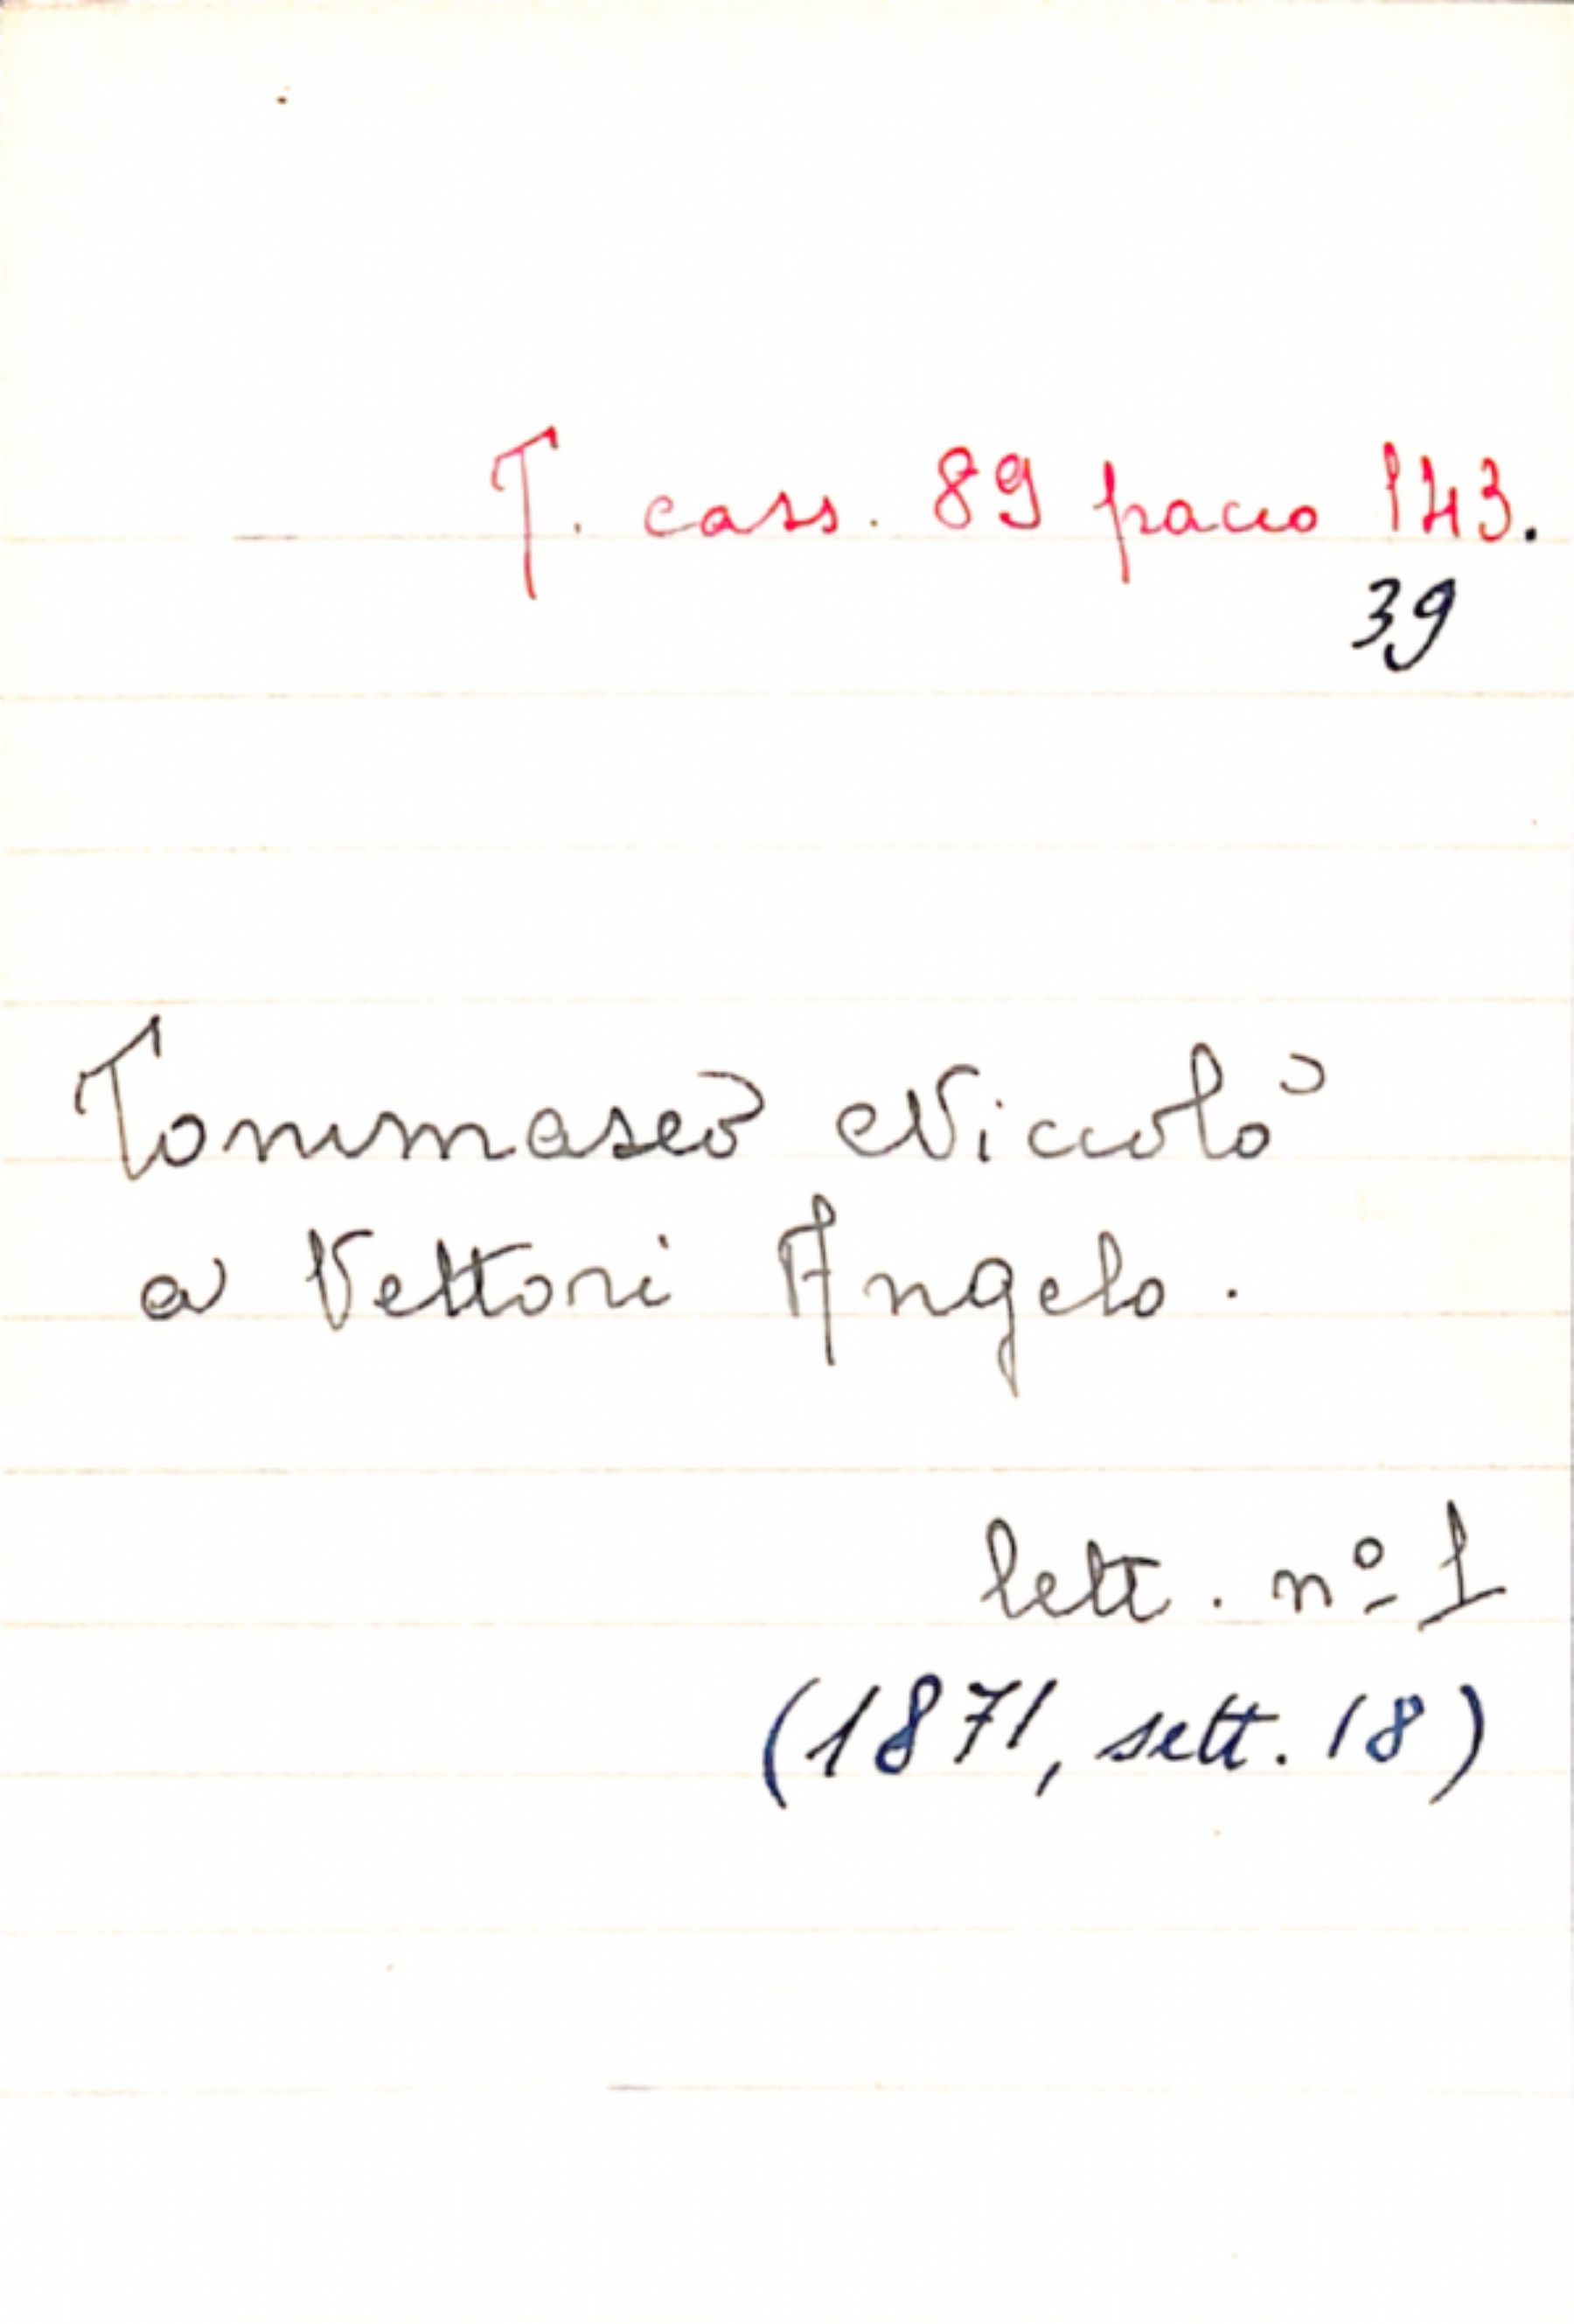 T. cass. 89 pacco 143.
39
Tommaseo Niccolò
a Vettori Angelo.
lett. nº 1
(1871, sett. 18)